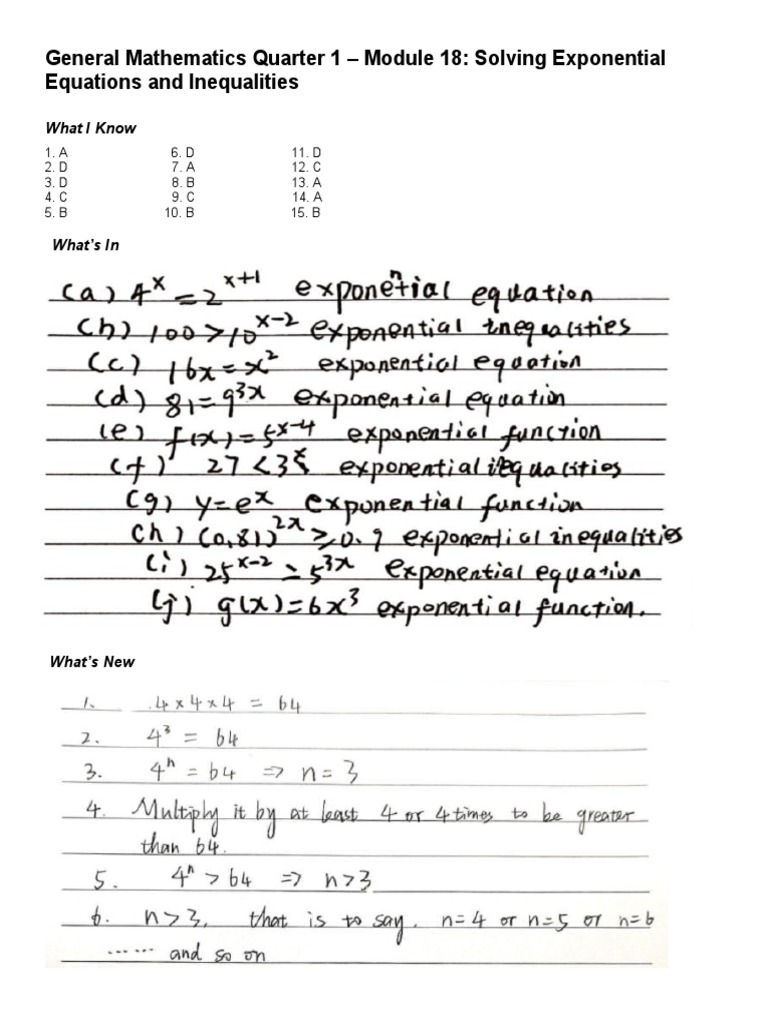 General Mathematics Quarter 1 – Module 18: Solving Exponential
Equations and Inequalities
What I Know
1. A 6. D 11. D
2. D 7. A 12. C
3. D 8. B 13. A
4. C 9. C 14. A
5. B 10. B 15. B
What's In
(a) 4ˣ = 2ˣ⁺¹ exponential equation
(b) 100 > 10ˣ⁻² exponential inequalities
(c) 16x = x² exponential equation
(d) 81 = 9³ˣ exponential equation
(e) f(x) = 5ˣ⁻⁴ exponential function
(f) 27 < 3ˣ exponential inequalities
(g) y = eˣ exponential function
(h) (0,81)²ˣ ≥ 0.9 exponential inequalities
(i) 25ˣ⁻² = 5³ˣ exponential equation
(j) g(x) = 6x³ exponential function.
What's New
1. 4 × 4 × 4 = 64
2. 4³ = 64
3. 4ⁿ = 64 ⇒ n = 3
4. Multiply it by at least 4 or 4 times to be greater
than 64.
5. 4ⁿ > 64 ⇒ n > 3
6. n > 3, that is to say, n = 4 or n = 5 or n = 6
...... and so on